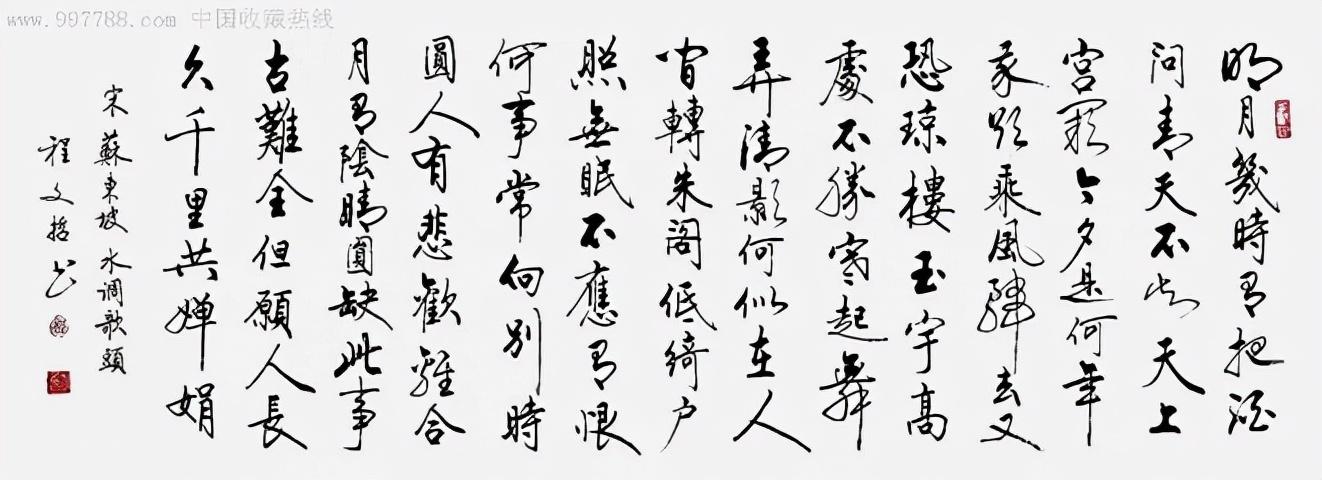 www.997788.com 中国收藏热线
明月幾時有把酒
问青天不知天上
宫闕今夕是何年
我欲乘風歸去又
恐琼樓玉宇高
處不勝寒起舞
弄清影何似在人
间轉朱阁低綺户
照無眠不應有恨
何事常向别時
圓人有悲歡離合
月有陰晴圓缺此事
古難全但願人長
久千里共嬋娟
宋蘇東坡水调歌頭
程文哲书